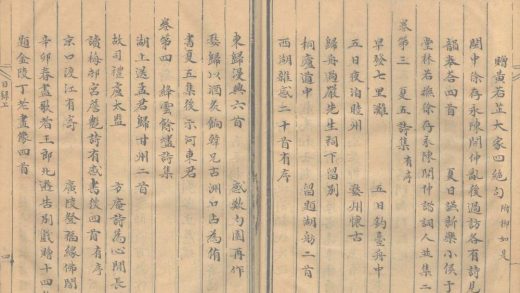 贈黃若芷大家四絕句 附柳如是
閩中徐存永陳開仲亂後過訪各有詩見
韻奉答四首 夏日讌新樂小侯于
豐林若撫徐存永陳開仲諸詞人並集二
卷第三 夏五詩集 有序
早發七里灘 五日釣臺舟中
五日夜泊睦州 婺州懷古
歸舟過嚴先生祠下留別
桐廬道中 留題湖舫二首
西湖雜感二十首有序
東歸漫興六首 感歎勺園再作
婺歸以酒炙餉韓兄古洲口占為侑
書夏五集後示河東君
卷第四 絳雲餘燼詩集
湖上送孟君歸甘州二首
故司禮盧太監 方庵詩為心聞長
讀梅邨宮詹艷詩有感書後四首有序
京口渡江有寄 廣陵登福緣佛閣
辛卯春盡歌者王郎北遊告別戲贈十四
題金陵丁老畫像四首
目錄上
四